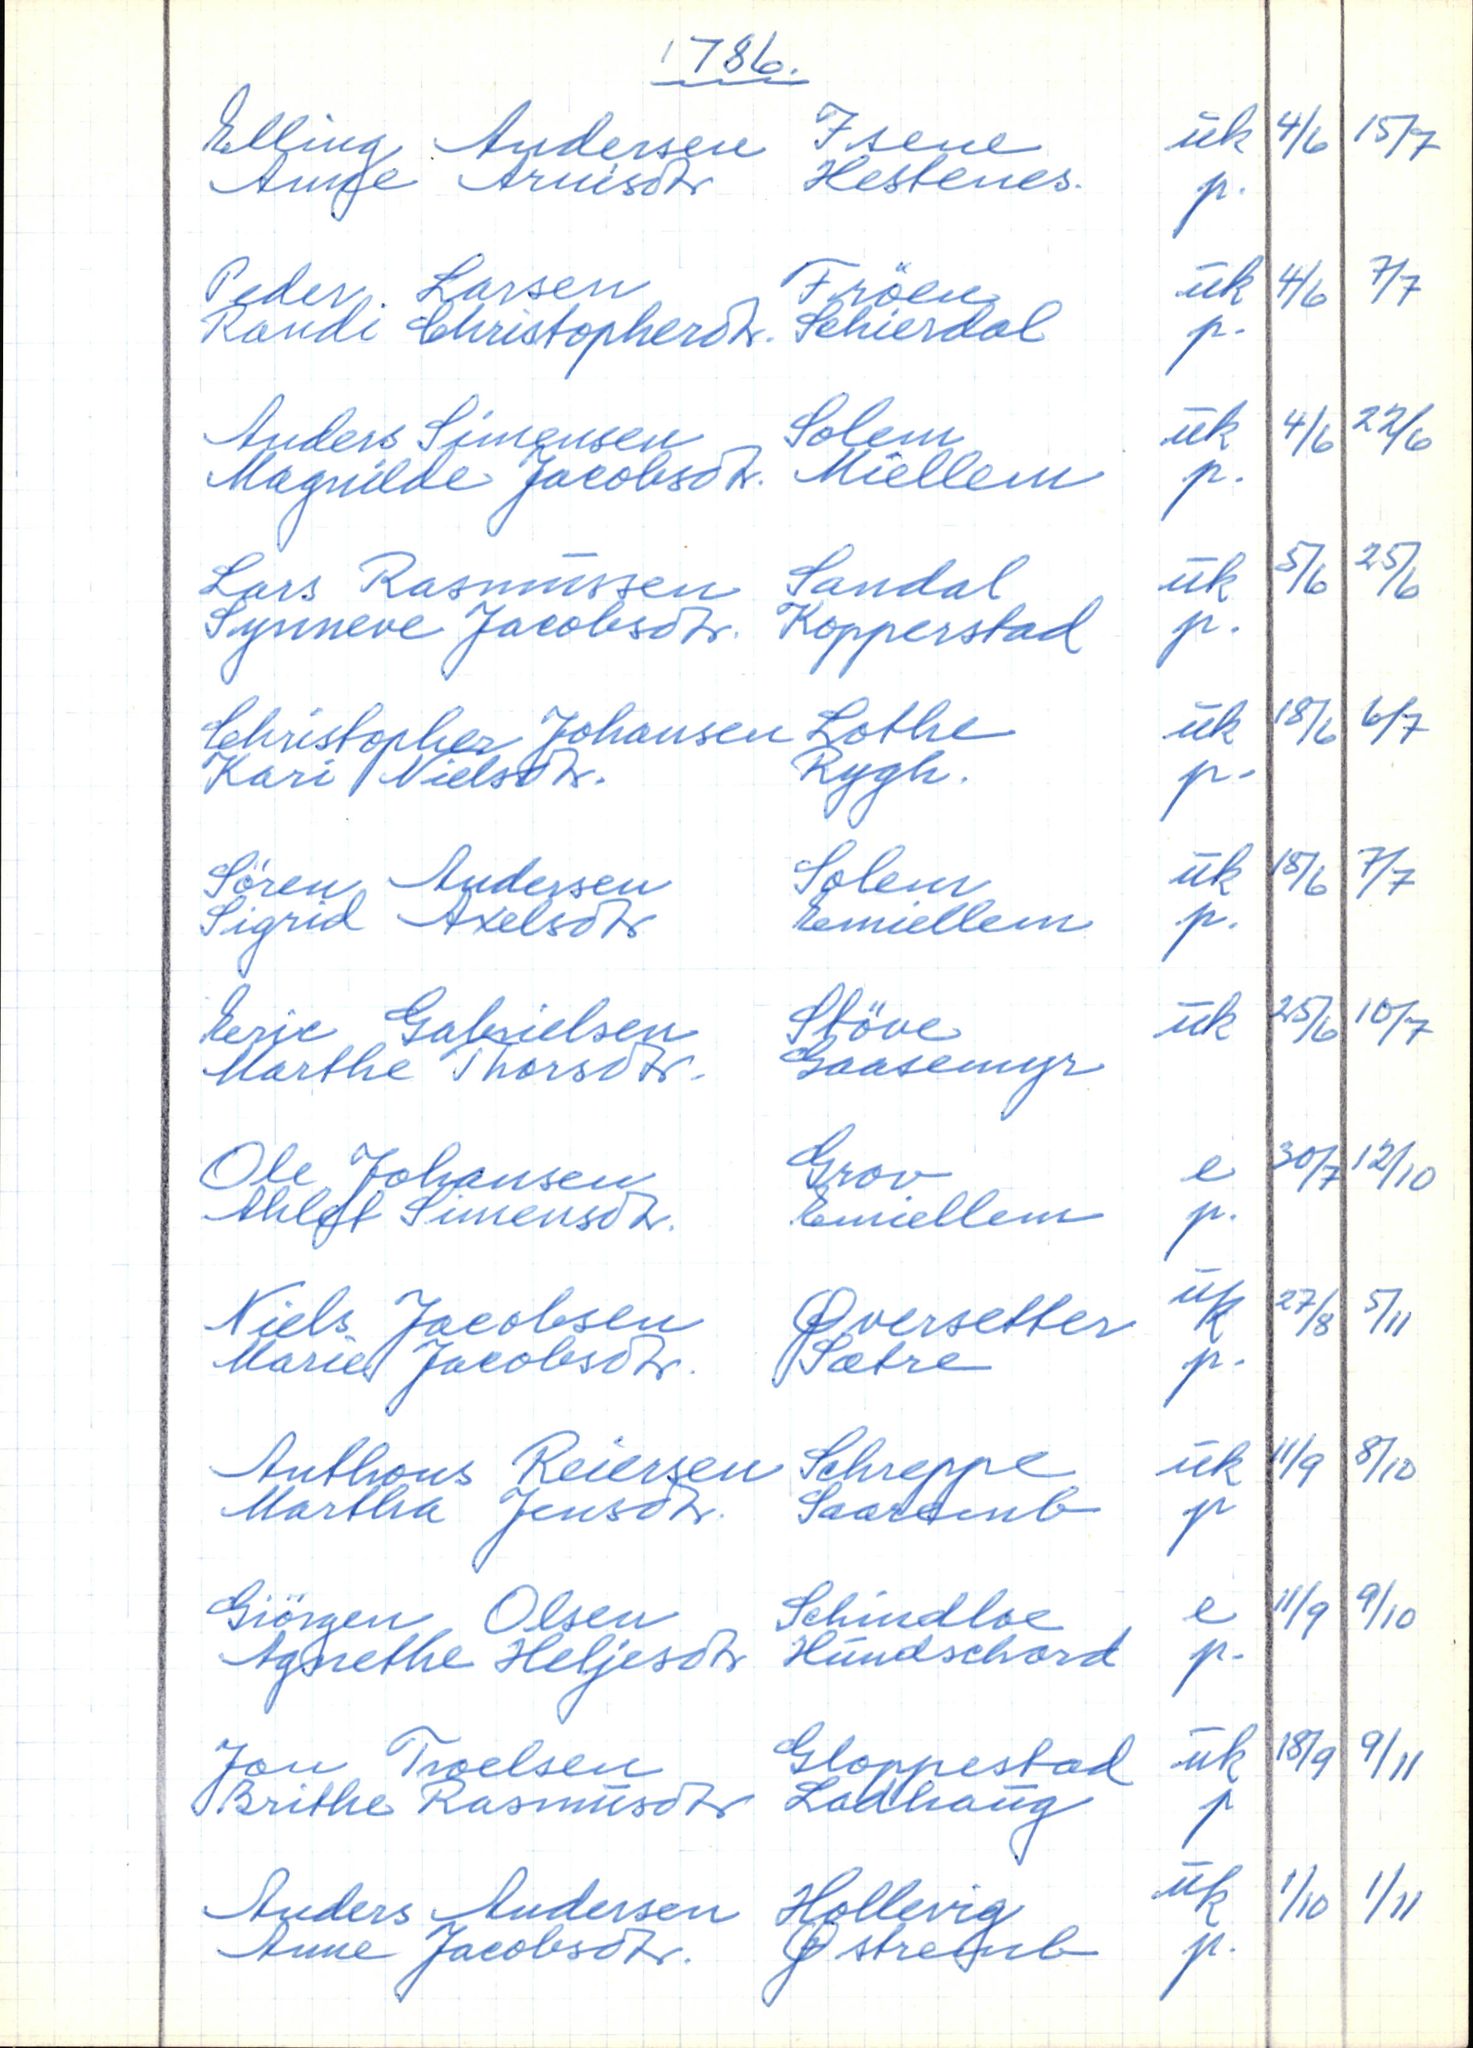 1786.
Elling Andersen Isene uk 4/6 15/7
Anne Arnisdtr Hestenes. p.
Peder. Larsen Fröen uk 4/6 7/7
Randi Christopherdtr. Schierdal p.
Anders Simensen Solem uk 4/6 22/6
Magnilde Jacobsdtr. Miellem p.
Lars Rasmussen Sandal uk 5/6 25/6
Synneve Jacobsdtr. Kopperstad p.
Christopher Johansen Lothe uk 18/6 6/7
Kari Nielsdtr. Rygh. p.
Sören Andersen Solem uk 18/6 7/7
Sigrid Axelsdtr Emiellem p.
Eric Gabrielsen Stöve uk 25/6 10/7
Marthe Thorsdtr. Gaasemyr
Ole Johansen Grov e 30/7 12/10
Ahlet Simensdtr. Emiellem p.
Niels Jacobsen Øversetter uk 27/8 5/11
Marie Jacobsdtr. Sætre p.
Anthons Reiersen Schreppe uk 11/9 8/10
Martha Jensdtr. Saaremb p
Giörgen Olsen Schindloe e 11/9 9/10
Agnethe Heljesdtr Hundschard p.
Jon Troelsen Gloppestad uk 18/9 9/11
Brithe Rasmusdtr Ladhaug p
Anders Andersen Hollevig uk 1/10 1/11
Anne Jacobsdtr. Østremb p.